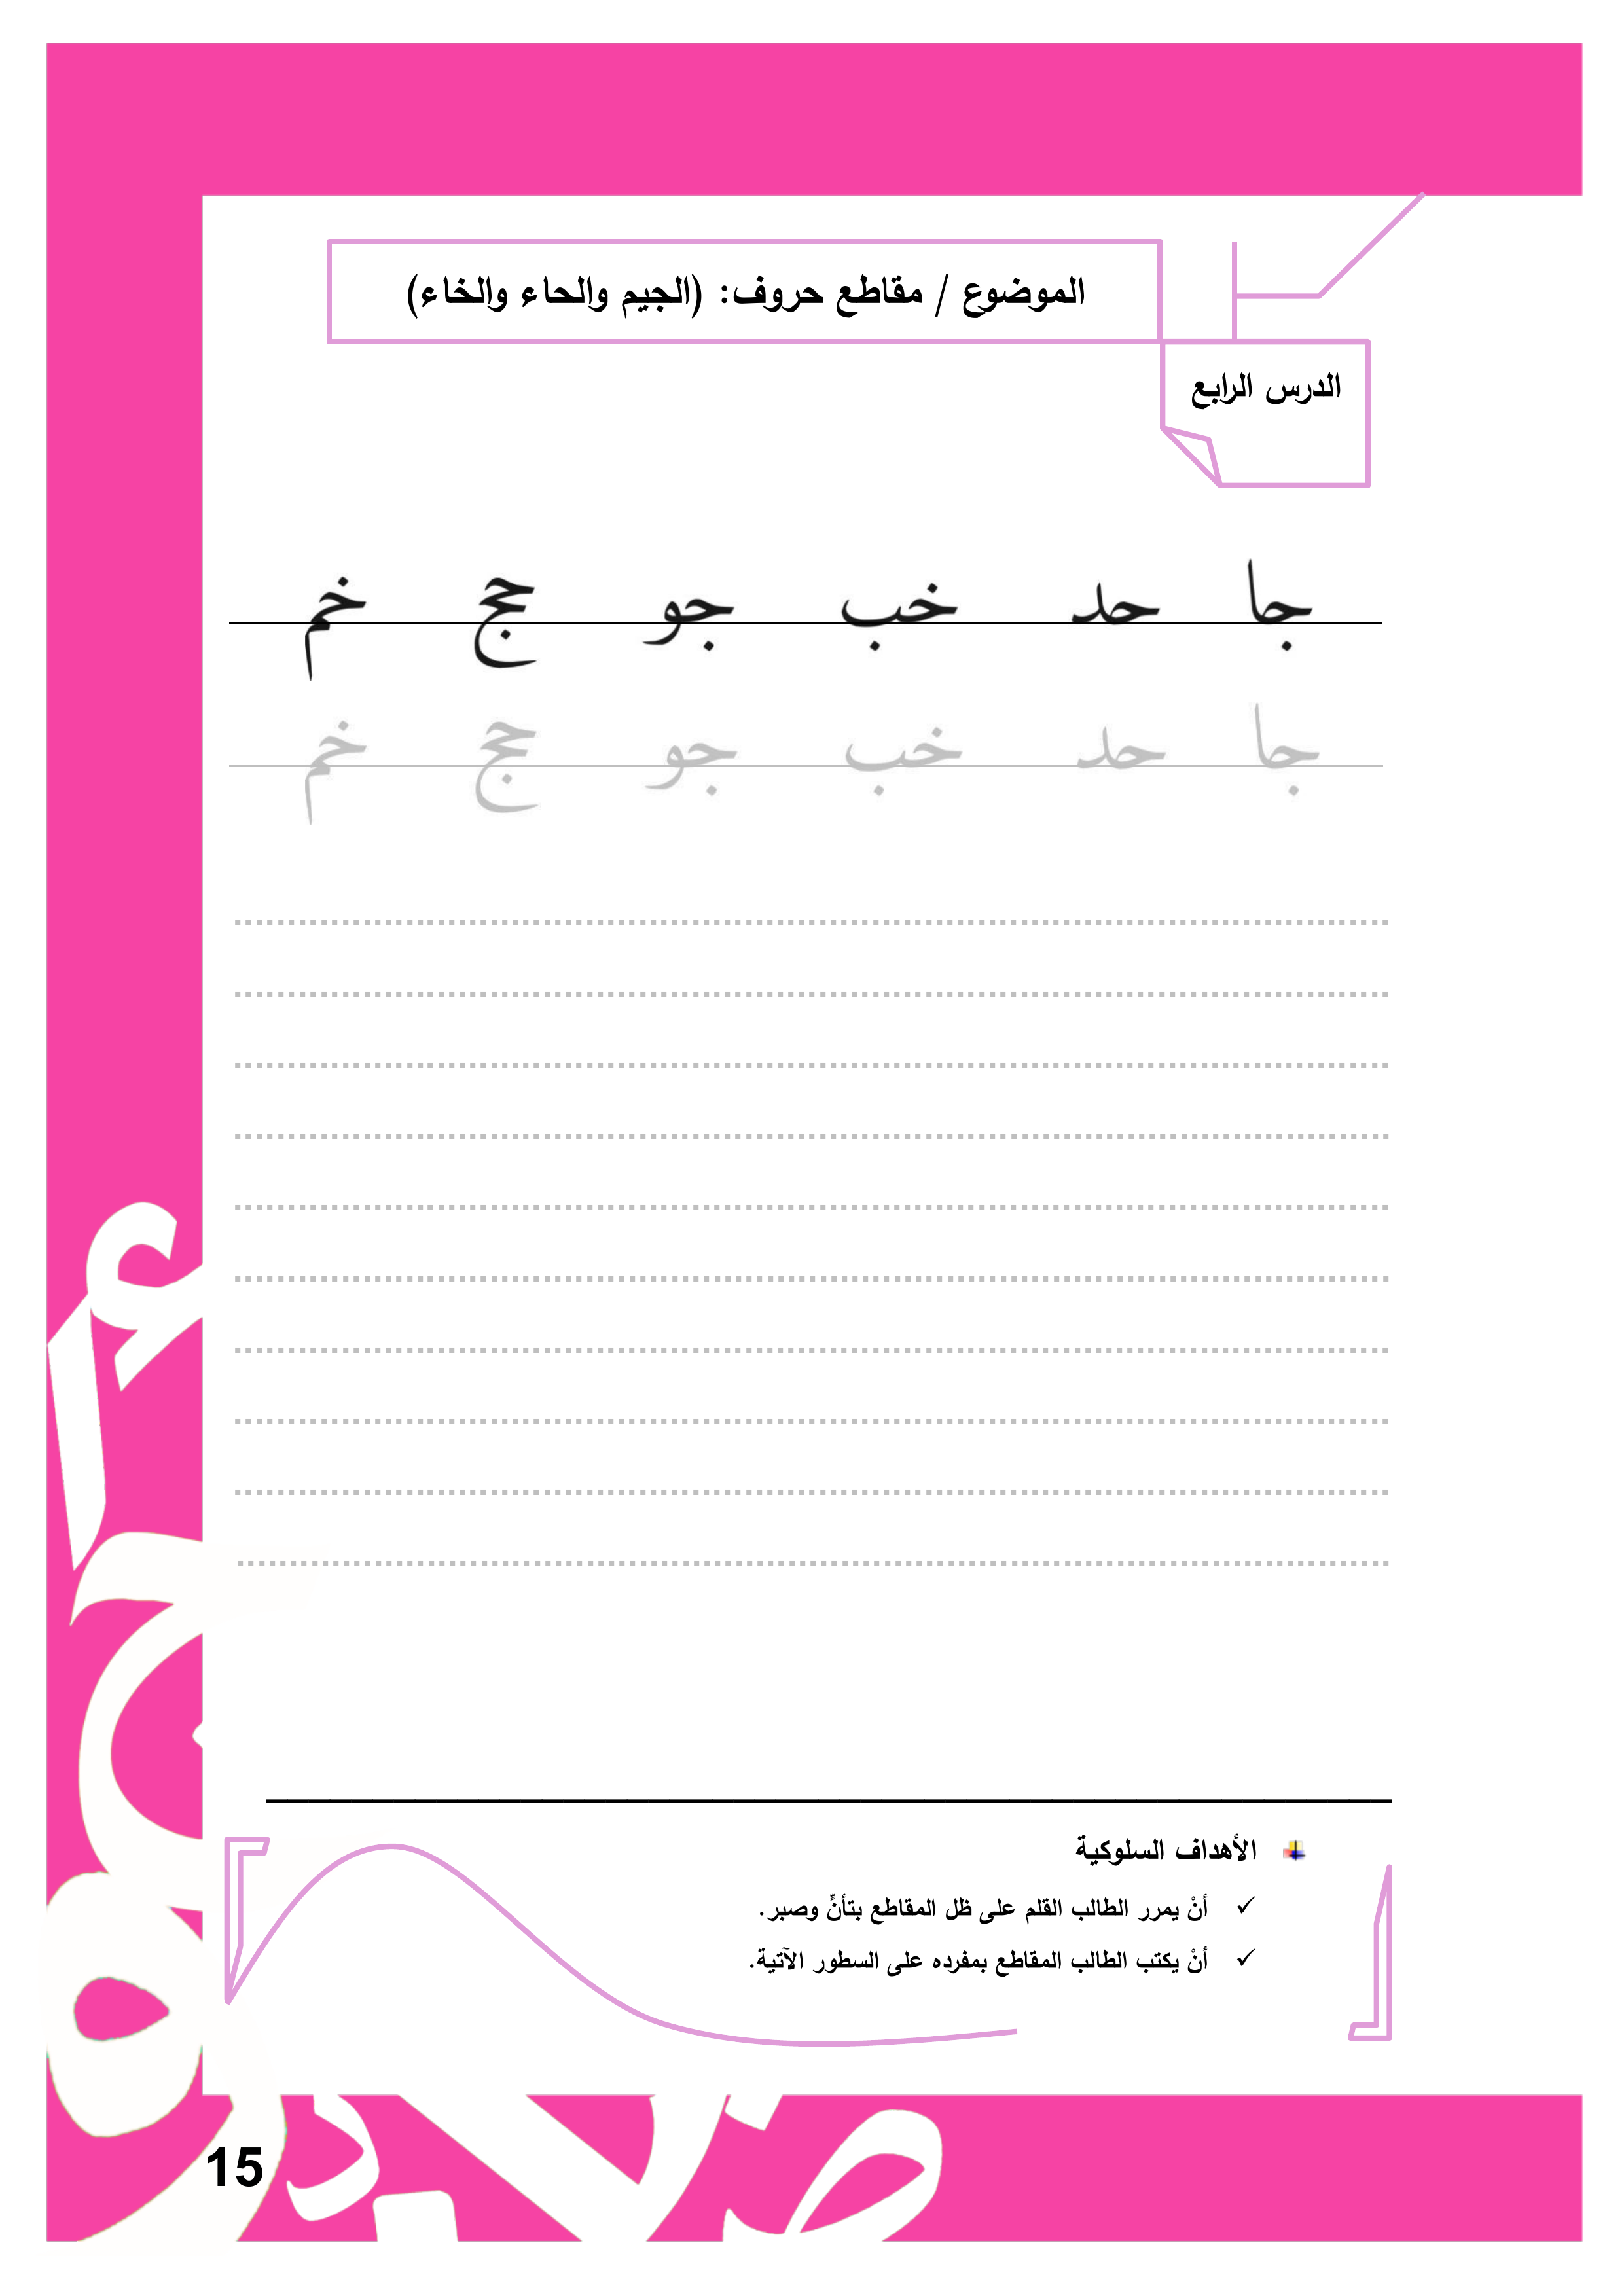 الموضوع / مقاطع حروف: (الجيم والحاء والخاء)
الدرس الرابع
جا حد خب جو حج خم
جا حد خب جو حج خم
الأهداف السلوكية
✓ أنْ يمرر الطالب القلم على ظل المقاطع بتأنٍّ وصبر.
✓ أنْ يكتب الطالب المقاطع بمفرده على السطور الآتية.
15